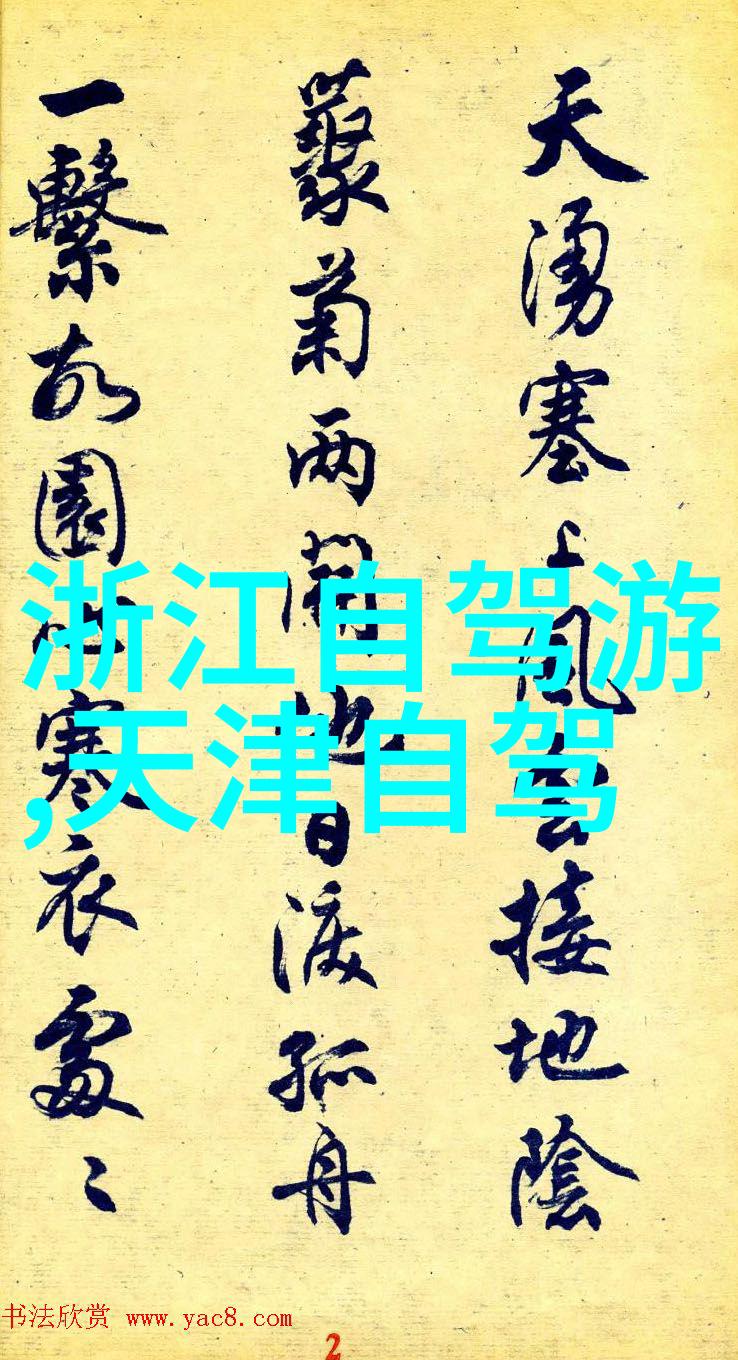 天湧塞上風雲接地陰
叢菊两開他日淚孤舟
一繫故園心寒衣處〻
浙江自驾游
,天津自驾
书法欣赏 www.yac8.com
2